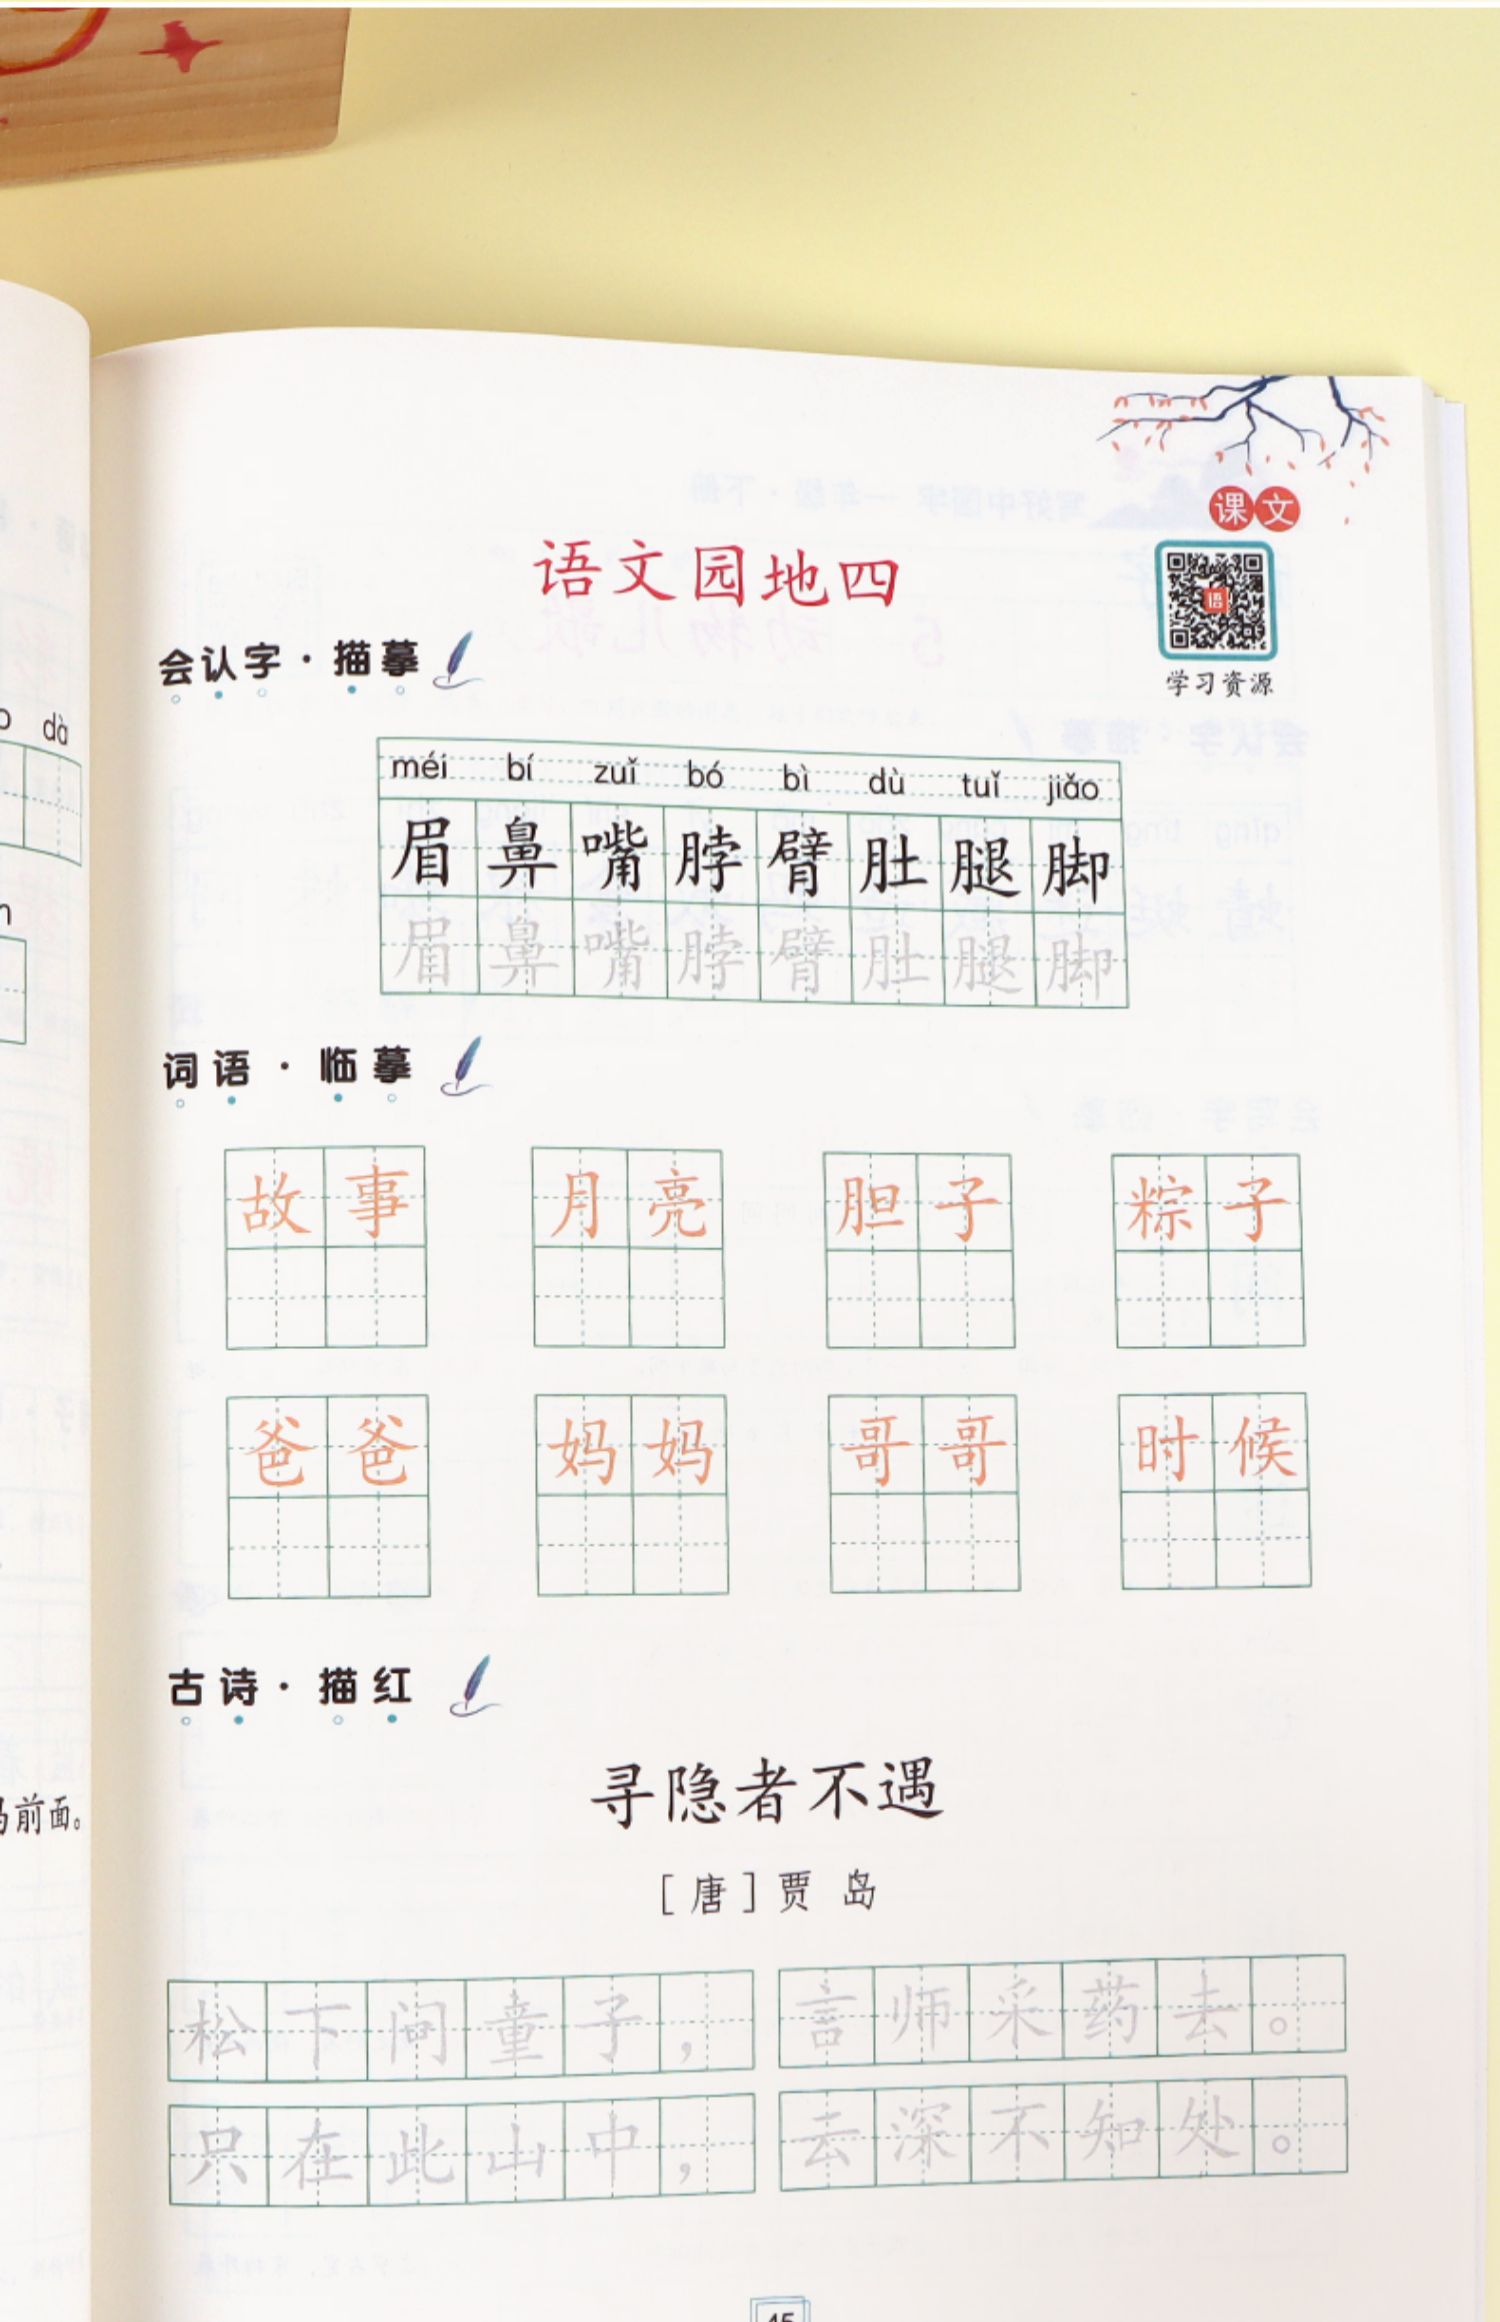 课文
语文园地四
学习资源
会认字·描摹
méi bí zuǐ bó bì dù tuǐ jiǎo
眉鼻嘴脖臂肚腿脚
眉鼻嘴脖臂肚腿脚
词语·临摹
故事 月亮 胆子 粽子
爸爸 妈妈 哥哥 时候
古诗·描红
寻隐者不遇
[唐]贾 岛
松下问童子， 言师采药去。
只在此山中， 去深不知处。
dà
前面。